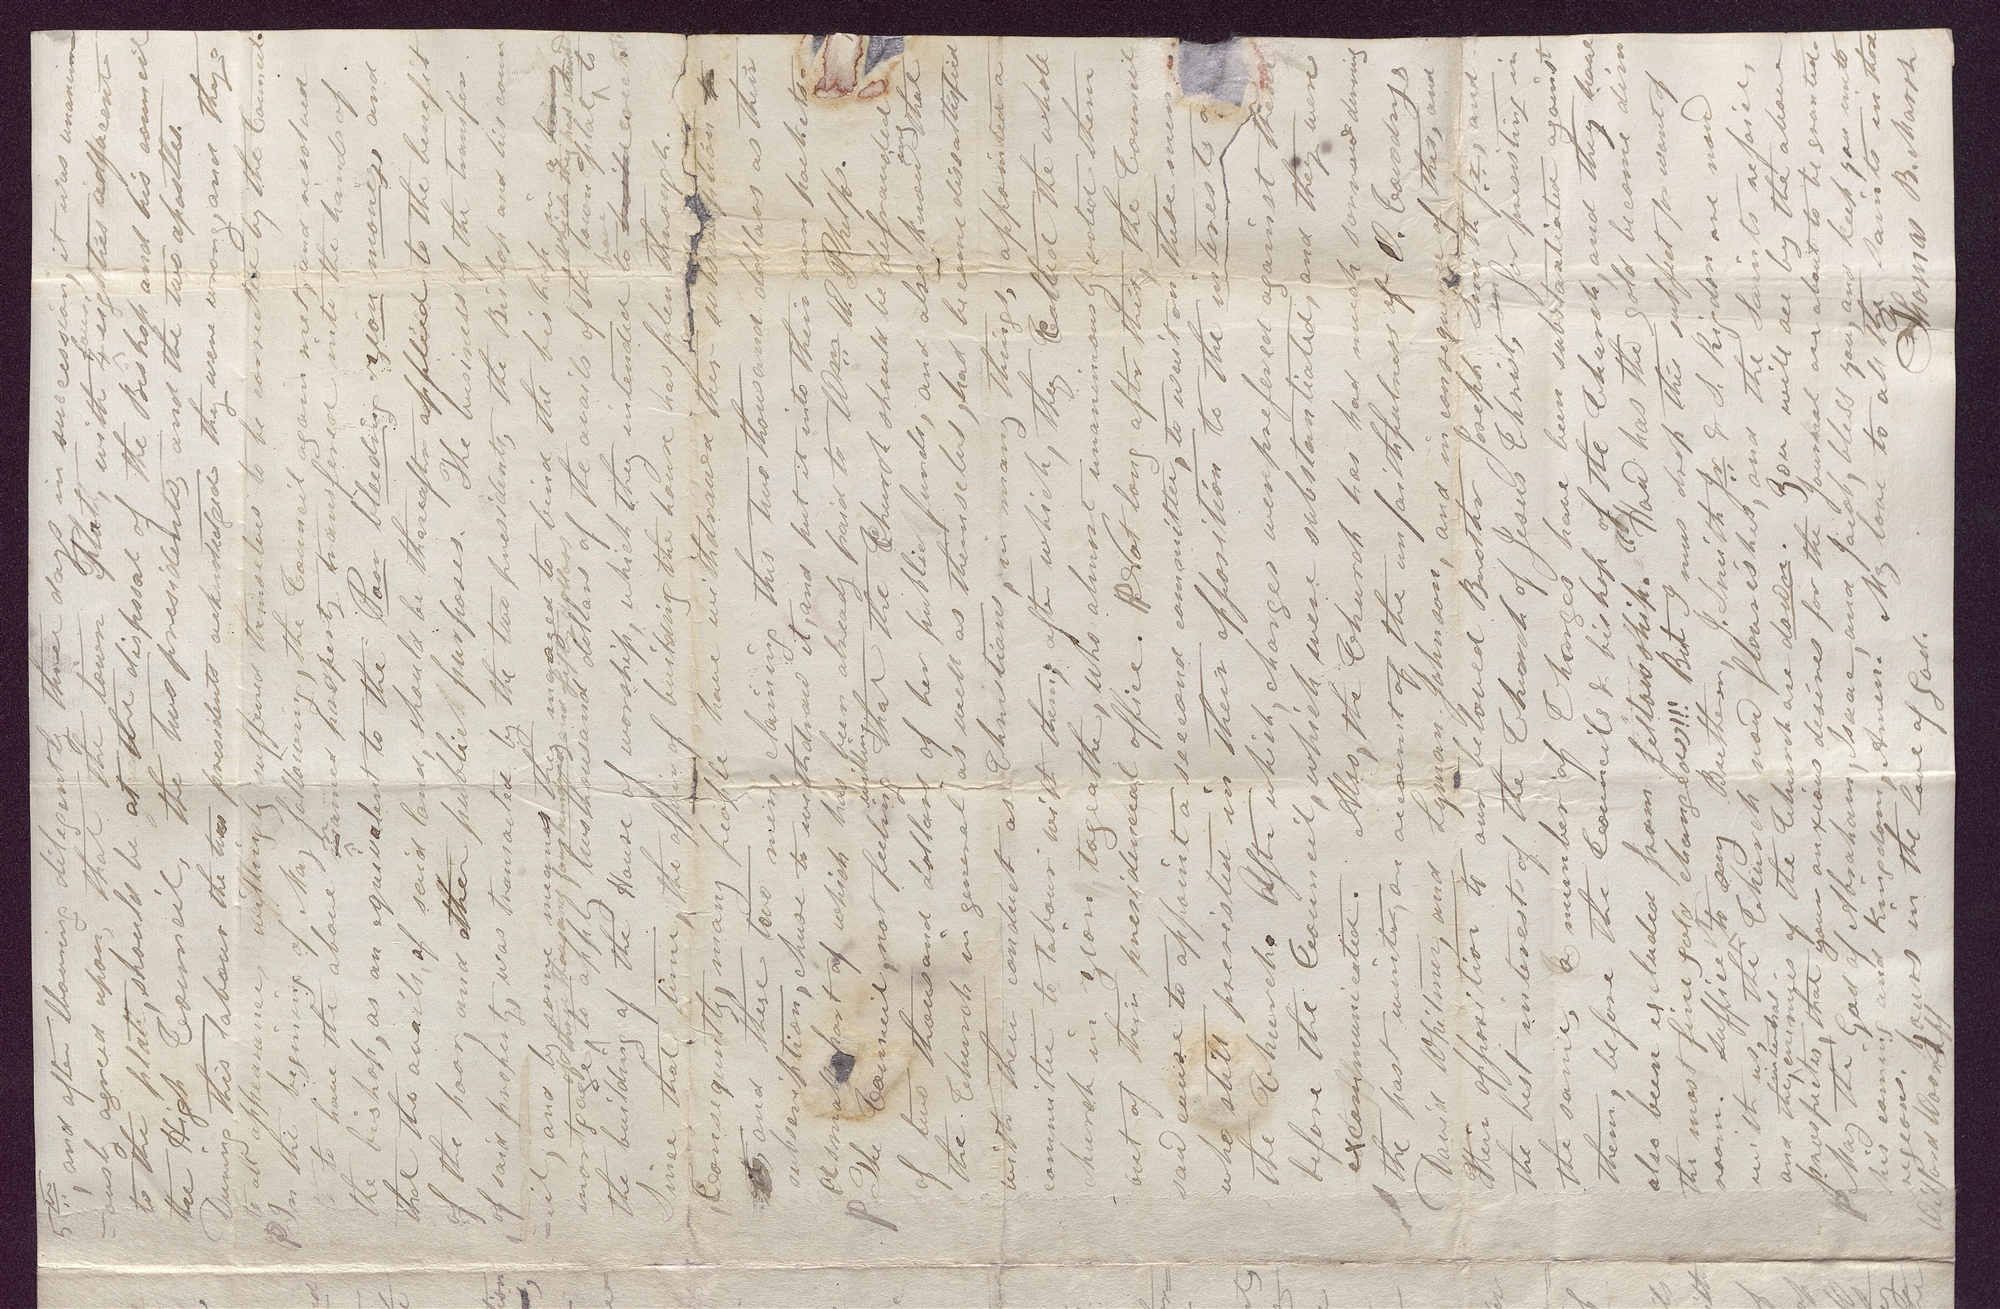 5th, and after labouring diligently three days in succession, it was unanim
-ously agreed upon, that the town Plat, with four eighties adjacent
to the plat, should be at the disposal of the Bishop and his council
the High Council, the two presidents, and the two apostles.
During this labour the two presidents acknowledged they were wrong, and they
to all appearance, willingly suffered themselves to be corrected by the Council
In the begining of May following, the Council again met, and resolved
to have the above named property transfered into the hands of
the bishop, as an equivalent to the Poor bleeding Zion money, and
that the avails, of said land, should be thereafter applied to the benefit
of the poor, and other publick purposes. The business of the transfer
of said property, was transacted by the two presidents, the Bishop and his coun
-cil, and by some means they ingaged to bind the bishop in a
mortgage, to apply two thousand dollars of the avails of the town plat to
the building of the House of worship, which they intended to
Since that time, the affair of building the house has falen through.
Consequently, many people have withdrawn their subscription to
it, and these two men claiming this two thousand dollars as their
subscription, chuse to withdraw it, and put it into their own pockets.
A small part of which has been already paid to Wm. W. Phelps.
The Council, not feeling willing that the Church should be defrauded
of two thousand dollars of her publick funds, and also knowing that
the Church in general as well as themselves, had become dissatisfied
with their conduct as Christians, in many things, appointed a
committee to labour with them; after which, they Called the whole
church in Zion togeather, who almost unanimous ly voted them
out of their presidencial office. Not long after this, the Council
saw cause to appoint a second committee, to wait on these men
who still persisted in their opposition to the interests of
the Church. After which, charges were prefered against them
before the Council, which were substantiated, and they were
excommunicated. Also, the Church has had much sorrow during
the past winter, on account of the unfaithfulness of O. Cowdery,
David Whitmer, and Lyman Johnson, and in consequence of this, and
their opposition to our beloved Brother Joseph Smith Jr., and
the best interests of the Church of Jesus Christ, for persisting in
the same, a number of Charges have been substantiated against
them, before the Councils & bishop of the Church, and they have
also been excluded from fellowship. "How has the gold become dim
the most fine gold changed"!!!! But I mus drop this subject for want of
room. Suffice it to say Brethren, J. Smith Jr. & S. Rigdon are now
with us, the Church now flourishes, and the Saints rejoice,
and the internal enemies of the Church are down. You will see by the above
prospectus, that your anxious desires for the Journal are about to be granted
May the God of Abraham, Isaac, and Jacob, bless you, and keep you unto
his coming and kingdom, Amen. My love to all the Saints in that
regions. Yours in the love of God. Thomas B. Marsh
Wilford Woodruff